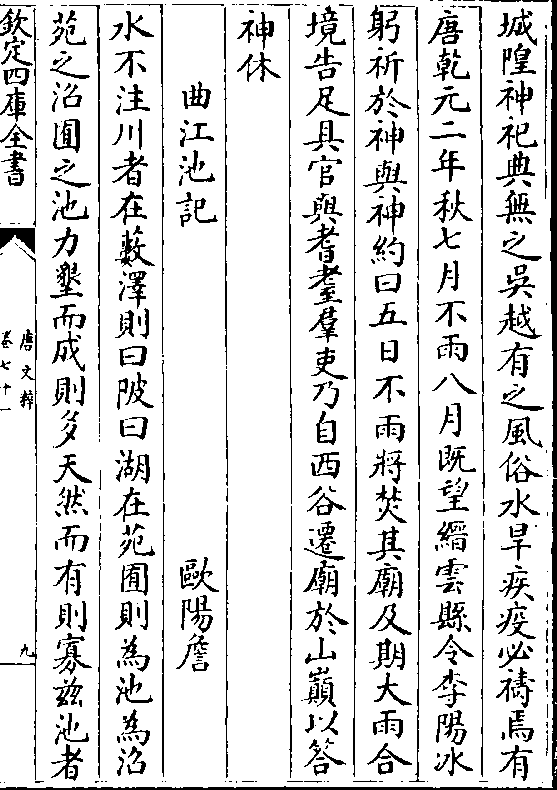 城隍神祀典無之吳越有之風俗水旱疾疫必禱焉有
唐乾元二年秋七月不雨八月既望縉雲縣令李陽冰
躬祈於神與神約曰五日不雨將焚其廟及期大雨合
境告足具官與耆耋羣吏乃自西谷遷廟於山巔以答
神休
曲江池記 歐陽詹
水不注川者在藪澤則曰陂曰湖在苑囿則為池為沼
苑之沼囿之池力墾而成則多天然而有則寡兹池者
欽定四庫全書
唐文粹
卷七十一
九